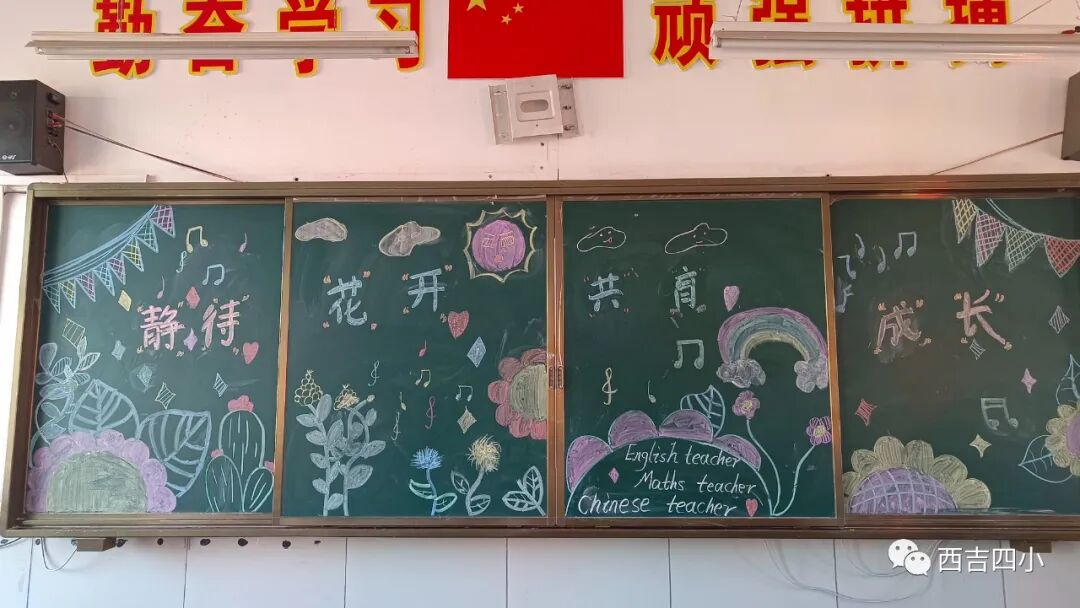 勤奋学习
顽强拼搏
静待
花开
共育
成长
English teacher
Maths teacher
Chinese teacher
西吉四小